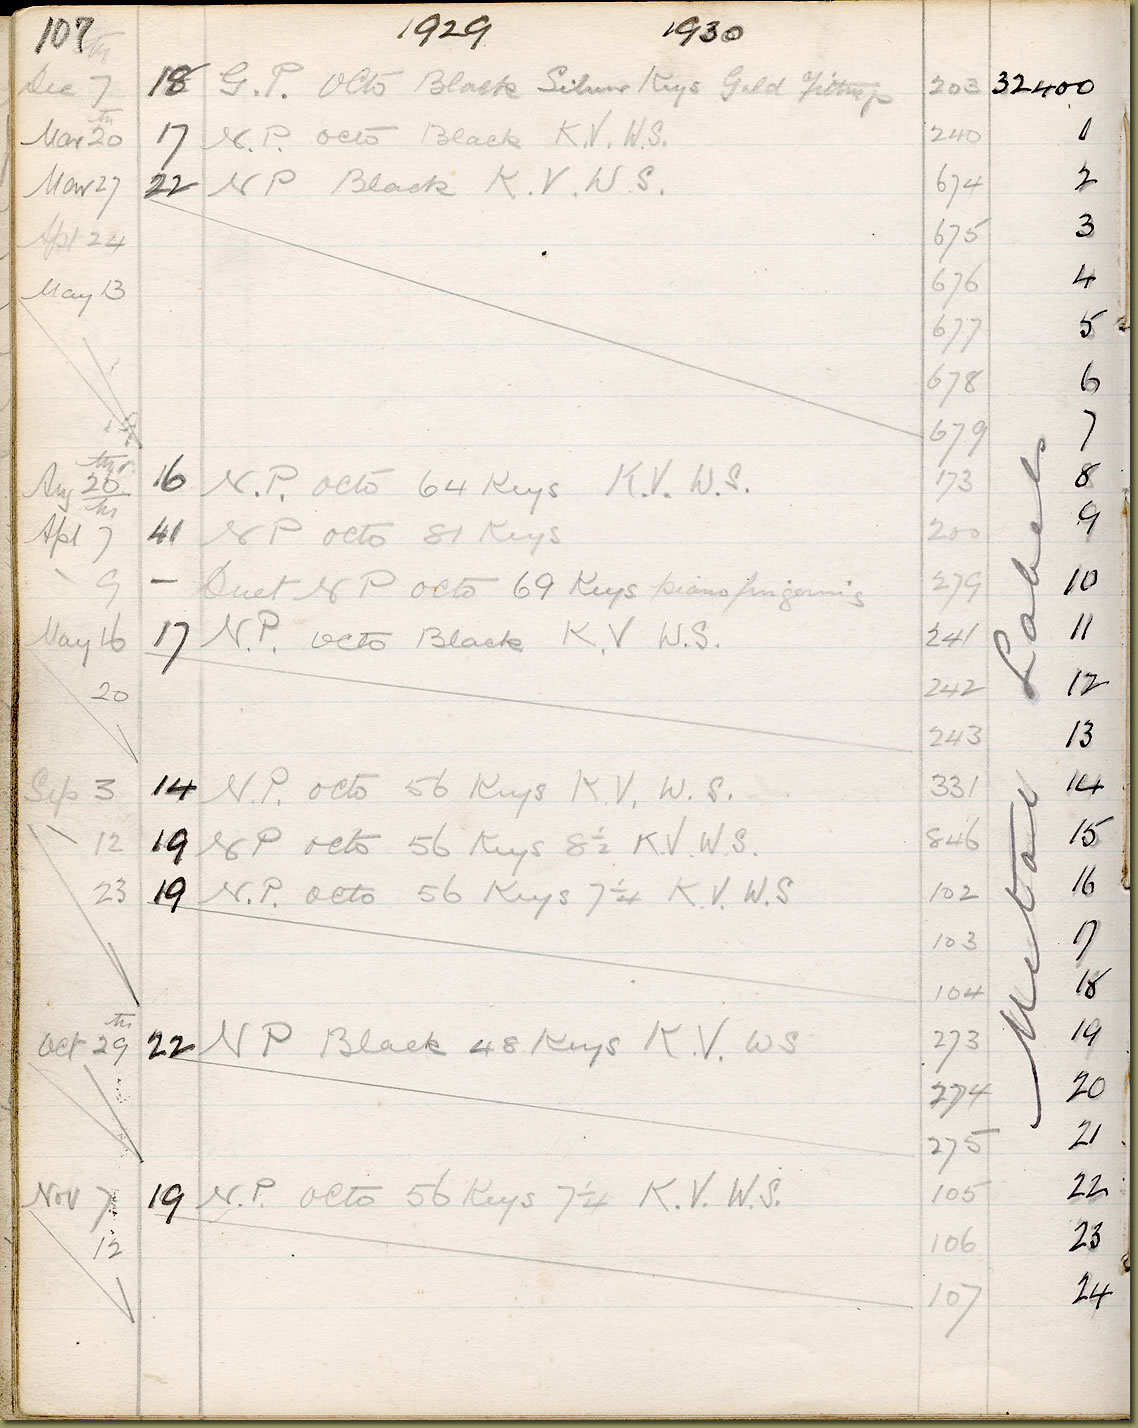 107 1929 1930
Dec 7th 18 G.P. Octo Black Silver Keys Gold Fittings 203 32400
Mar 20th 17 N.P. octo Black K.V. W.S. 240 1
Mar 27 22 N P Black K.V. W.S. 674 2
Apl 24 675 3
May 13 676 4
677 5
678 6
679 7
Aug 26th 16 N.P. octo 64 Keys K.V. W.S. 173 8
Apl 7th 41 N P octo 81 Keys 200 9
9 – Duet N P octo 69 Keys piano fingering 279 10
May 16 17 N.P. octo Black K.V W.S. 241 11
20 242 12
243 13
Sep 3 14 N.P. octo 56 Keys K.V. W.S. 331 14
12 19 N P octo 56 Keys 8½ K.V. W.S. 846 15
23 19 N.P. octo 56 Keys 7¼ K.V. W.S 102 16
103 17
104 18
Oct 29th 22 N P Black 48 Keys K.V. WS 273 19
274 20
275 21
Nov 7 19 N.P. octo 56 Keys 7¼ K.V. W.S. 105 22
12 106 23
107 24
Labels